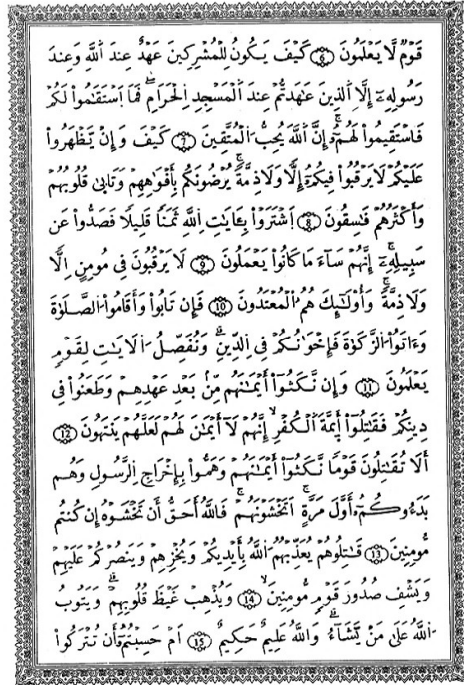 قَوۡمٞ لَّا يَعۡلَمُونَ ۝٦ كَيۡفَ يَكُونُ لِلۡمُشۡرِكِينَ عَهۡدٌ عِندَ اَ۬للَّهِ وَعِندَ
رَسُولِهِۦٓ إِلَّا اَ۬لَّذِينَ عَٰهَدتُّمۡ عِندَ اَ۬لۡمَسۡجِدِ اِ۬لۡحَرَامِۖ فَمَا اَ۪سۡتَقَٰمُواْ لَكُمۡ
فَاسۡتَقِيمُواْ لَهُمُۥٓۚ إِنَّ اَ۬للَّهَ يُحِبُّ اُ۬لۡمُتَّقِينَ ۝٧ كَيۡفَ وَإِن يَظۡهَرُواْ
عَلَيۡكُمۡ لَا يَرۡقُبُواْ فِيكُمُۥٓ إِلّٗا وَلَا ذِمَّةٗۚ يُرۡضُونَكُم بِأَفۡوَٰهِهِمۡ وَتَابىٰ قُلُوبُهُمۡ
وَأَكۡثَرُهُمۡ فَٰسِقُونَ ۝٨ اَ۪شۡتَرَوۡاْ بِـَٔايَٰتِ اِ۬للَّهِ ثَمَنٗا قَلِيلٗا فَصَدُّواْ عَن
سَبِيلِهِۦٓۚ إِنَّهُمۡ سَآءَ مَا كَانُواْ يَعۡمَلُونَ ۝٩ لَا يَرۡقُبُونَ فِي مُومِنٍ اِلّٗا
وَلَا ذِمَّةٗۚ وَأُوْلَٰٓئِكَ هُمُ اُ۬لۡمُعۡتَدُونَ ۝١٠ فَإِن تَابُواْ وَأَقَامُواْ اُ۬لصَّلَوٰةَ
وَءَاتَوُاْ اُ۬لزَّكَوٰةَ فَإِخۡوَٰنُكُمۡ فِي اِ۬لدِّينِۖ وَنُفَصِّلُ اُ۬لَايَٰتِ لِقَوۡمٖ
يَعۡلَمُونَ ۝١١ وَإِن نَّكَثُوٓاْ أَيۡمَٰنَهُم مِّنۢ بَعۡدِ عَهۡدِهِمۡ وَطَعَنُواْ فِي
دِينِكُمۡ فَقَٰتِلُوٓاْ أَئِمَّةَ اَ۬لۡكُفۡرِ إِنَّهُمۡ لَآ أَيۡمَٰنَ لَهُمۡ لَعَلَّهُمۡ يَنتَهُونَ ۝١٢
أَلَا تُقَٰتِلُونَ قَوۡمٗا نَّكَثُوٓاْ أَيۡمَٰنَهُمۡ وَهَمُّواْ بِإِخۡرَاجِ اِ۬لرَّسُولِ وَهُم
بَدَءُوكُمُۥٓ أَوَّلَ مَرَّةٍۚ اَتَخۡشَوۡنَهُمۡۚ فَاللَّهُ أَحَقُّ أَن تَخۡشَوۡهُ إِن كُنتُم
مُّومِنِينَ ۝١٣ قَٰتِلُوهُمۡ يُعَذِّبۡهُمُ اُ۬للَّهُ بِأَيۡدِيكُمۡ وَيُخۡزِهِمۡ وَيَنصُرۡكُمۡ عَلَيۡهِمۡ
وَيَشۡفِ صُدُورَ قَوۡمٖ مُّومِنِينَ ۝١٤ وَيُذۡهِبۡ غَيۡظَ قُلُوبِهِمۡۖ وَيَتُوبُ
اُ۬للَّهُ عَلَىٰ مَنۡ يَّشَآءُۖ وَاللَّهُ عَلِيمٌ حَكِيمٌ ۝١٥ اَمۡ حَسِبۡتُمُۥٓ أَن تُتۡرَكُواْ